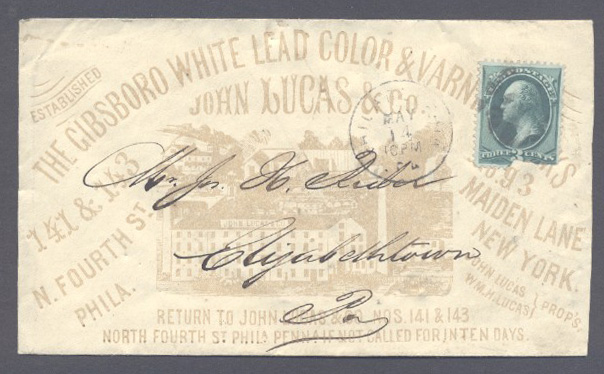 ESTABLISHED
THE GIBSBORO WHITE LEAD COLOR & VARN
JOHN LUCAS & CO
141 & 143
N. FOURTH ST.
PHILA.
93
MAIDEN LANE
NEW YORK.
JOHN LUCAS
WM. H. LUCAS
PROP'S.
MAY
14
PM
U.S. POSTAGE
THREE CENTS
Mr. Jos. H.
Elizabethtown
Pa
RETURN TO JOHN LUCAS & CO. NOS. 141 & 143
NORTH FOURTH ST. PHILA. PENNA. IF NOT CALLED FOR IN TEN DAYS.